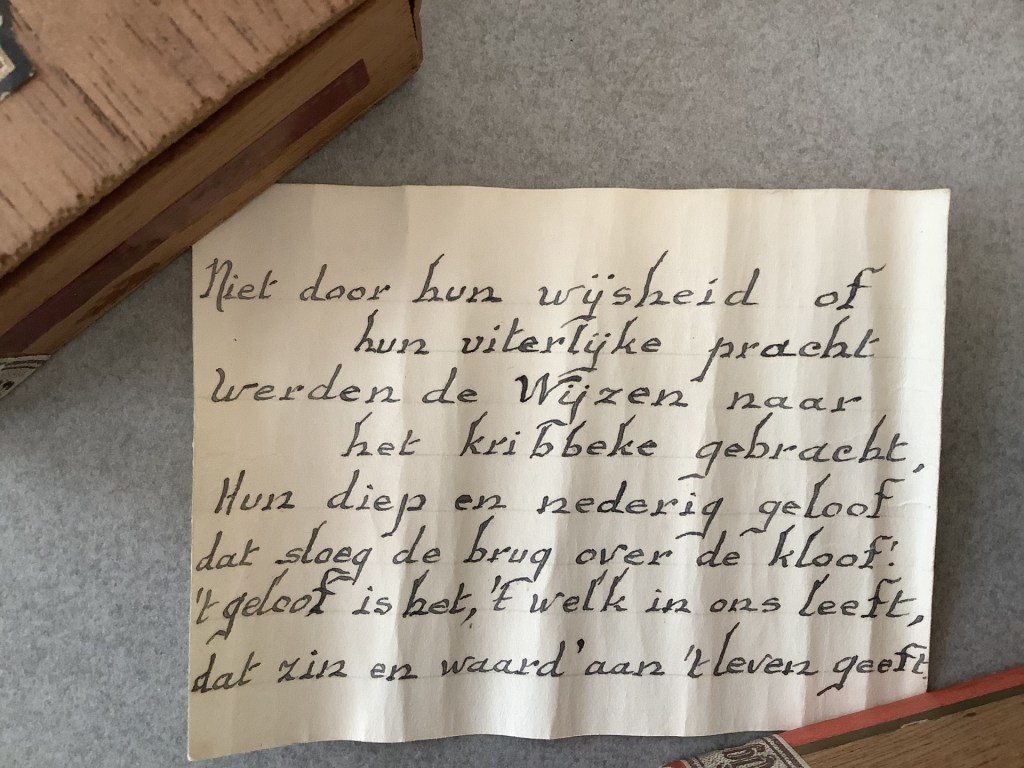 Niet door hun wijsheid of
hun uiterlijke pracht
werden de Wijzen naar
het kribbeke gebracht,
Hun diep en nederig geloof
dat sloeg de brug over de kloof!
't geloof is het, 't welk in ons leeft,
dat zin en waard' aan 't leven geeft.